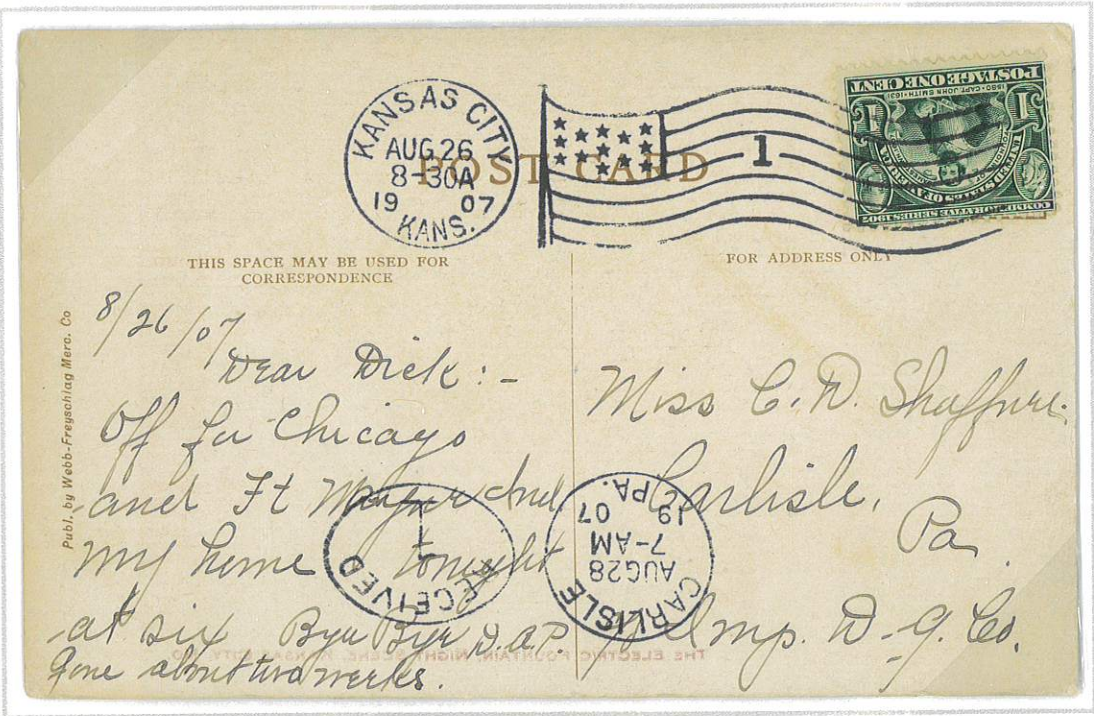 KANSAS CITY
AUG 26
8-30A
19 07
KANS.
1
POST CARD
POSTAGE ONE CENT
1580 · CAPT. JOHN SMITH · 1631
1 1
UNITED STATES OF AMERICA
COMMEMORATIVE SERIES 1907
THIS SPACE MAY BE USED FOR
CORRESPONDENCE
FOR ADDRESS ONLY
Publ. by Webb-Freyschlag Merc. Co
8/26/07
Dear Dick:-
Off for Chicago
and Ft Ind
my home tonight
at six Bye Bye D.A.P.
Gone about two weeks.
Miss C. D.
Carlisle,
Pa
Imp. D-G. Co.
RECEIVED
1
CARLISLE
AUG 28
7-AM
19 07
PA.
THE ELECTRIC FOUNTAIN, NIGHT SCENE, KANSAS CITY,